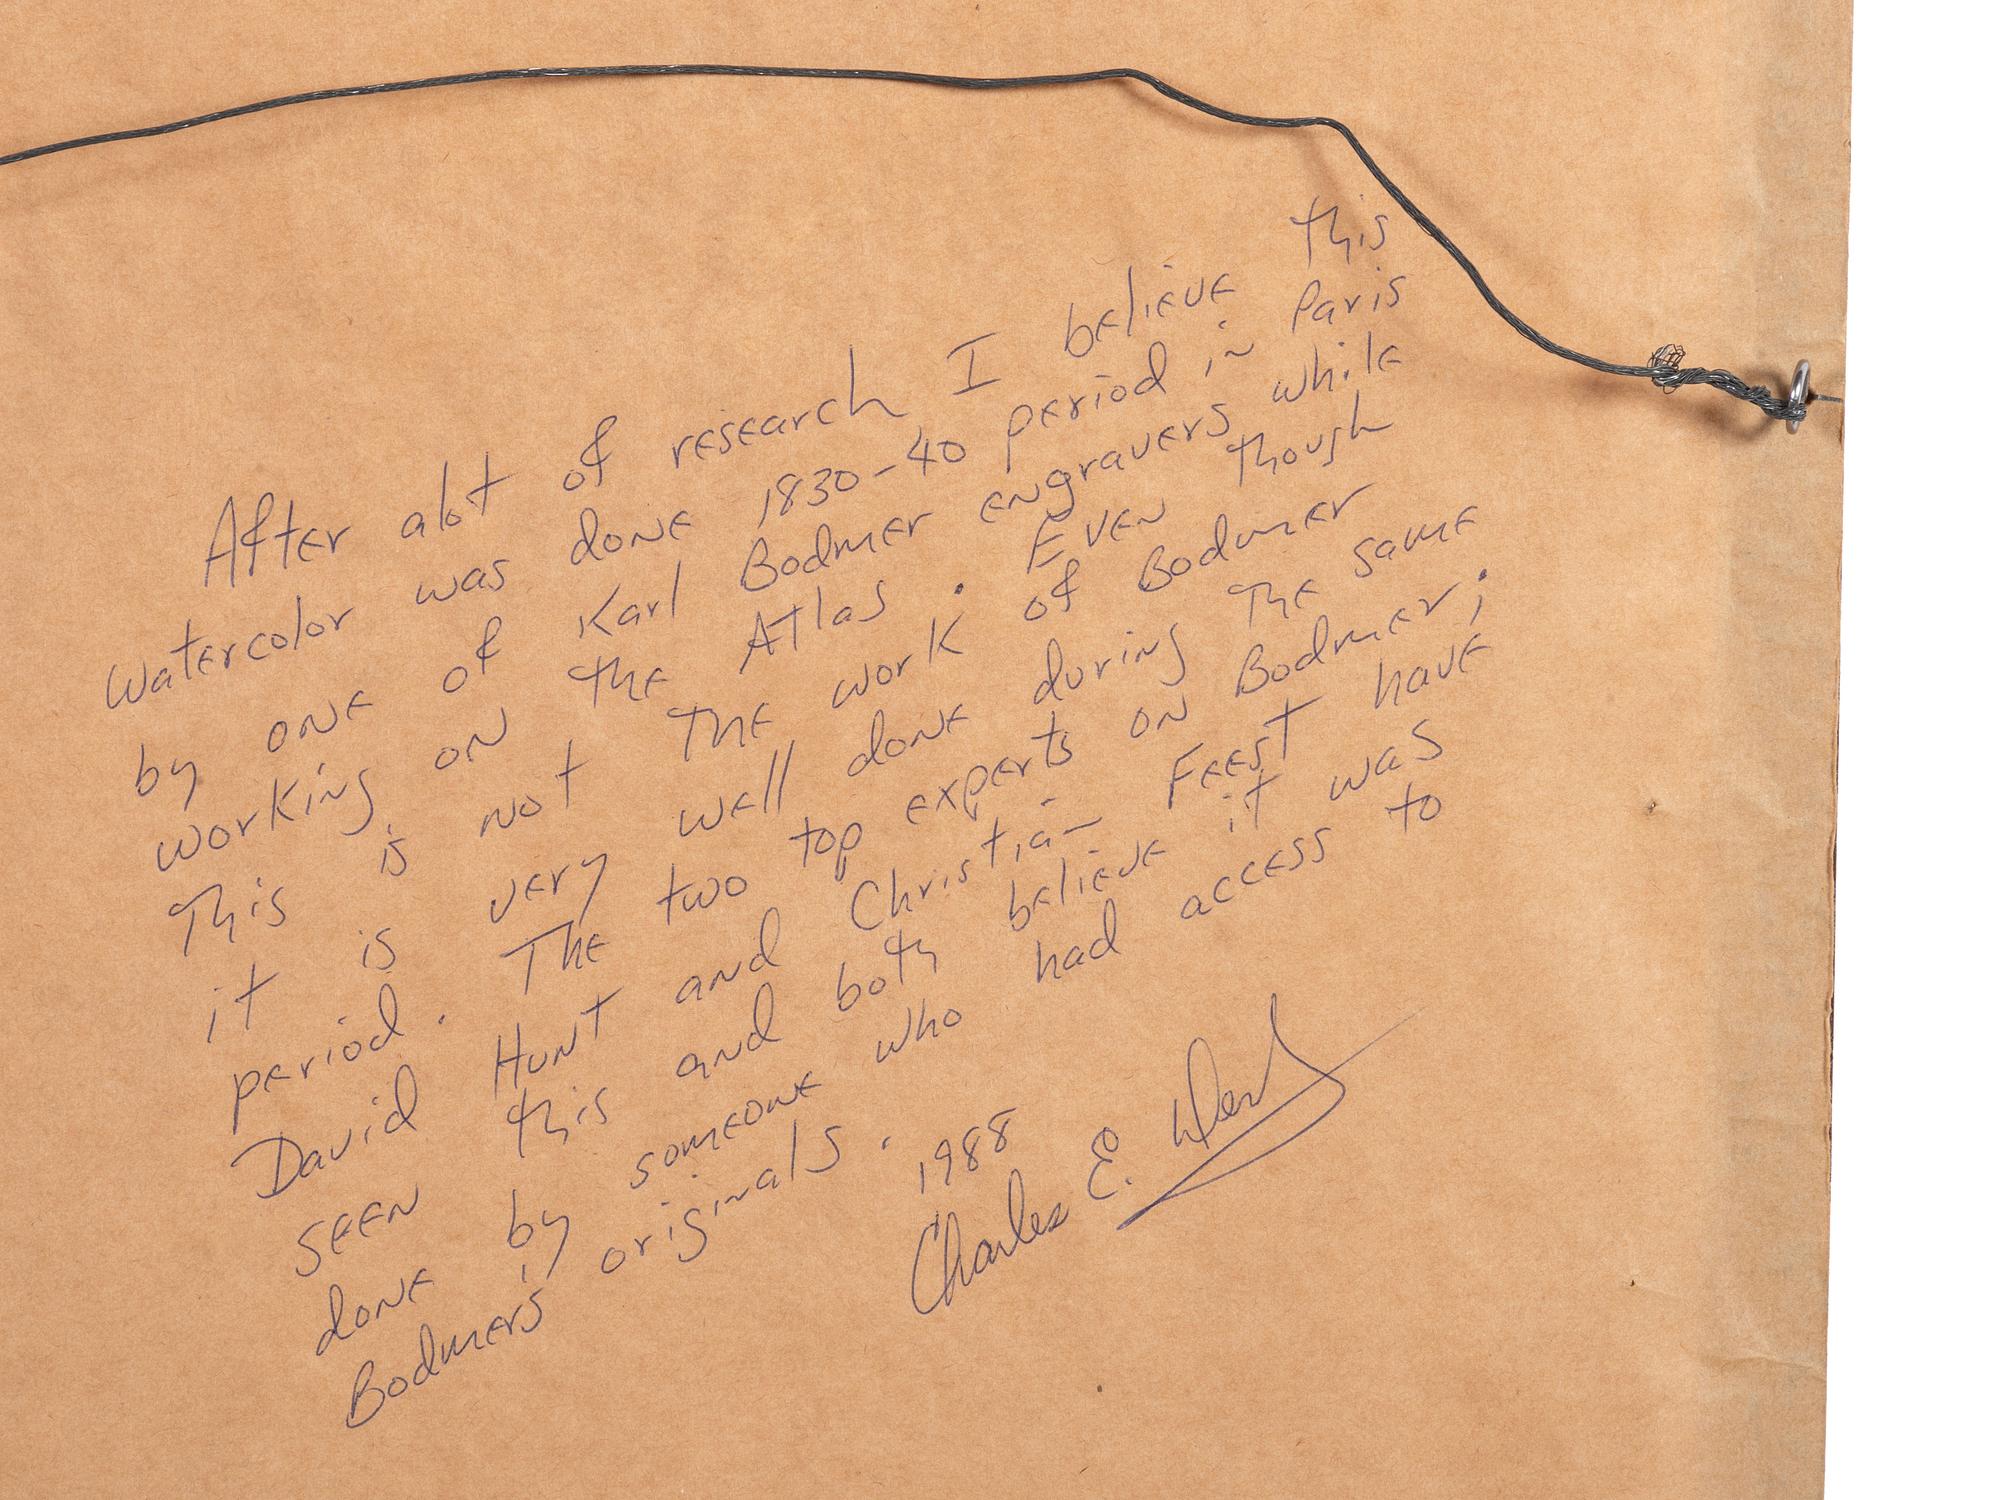 After alot of research I believe this
watercolor was done 1830-40 period in Paris
by one of Karl Bodmer engravers while
working on the Atlas. Even though
This is not the work of Bodmer
it is very well done during the same
period. The two top experts on Bodmer;
David Hunt and Christian Feest have
seen this and both believe it was
done by someone who had access to
Bodmer's originals.
1988
Charles E.